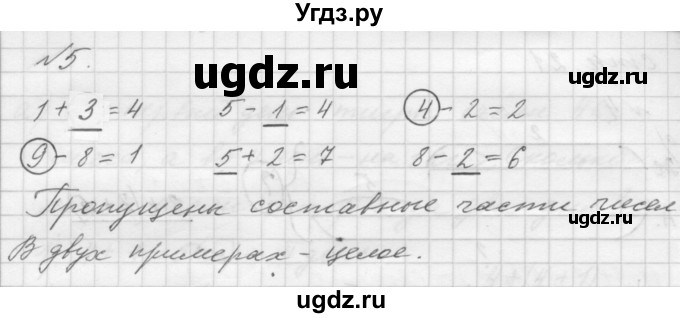 Угдз.ру
№5.
1 + 3 = 4 5 - 1 = 4 4 - 2 = 2
9 - 8 = 1 5 + 2 = 7 8 - 2 = 6
Пропущены составные части чисел
В двух примерах - целое.
ugdz.ru ugdz.ru
ugdz.ru ugdz.ru
ugdz.ru ugdz.ru
ugdz.ru